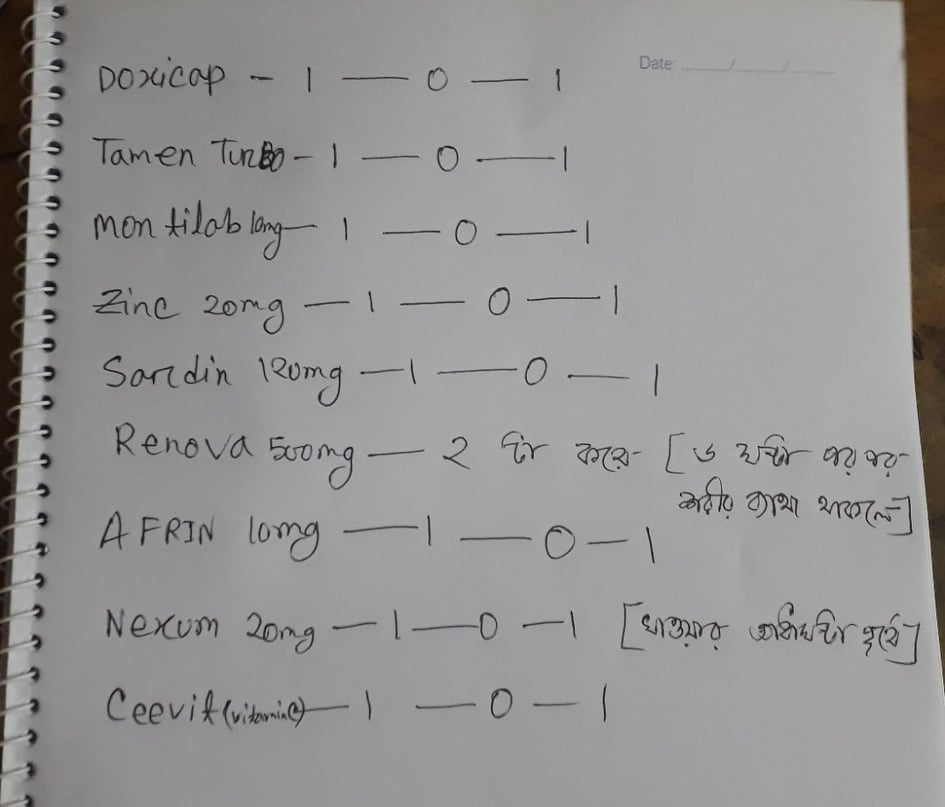 Doxicap - 1 — 0 — 1
Date: __/__/__
Tamen Turbo - 1 — 0 — 1
Montilab long — 1 — 0 — 1
Zinc 20mg — 1 — 0 — 1
Sardin 120mg — 1 — 0 — 1
Renova 500mg — 2 টি করে - [৬ ঘন্টা পর পর
শরীর ব্যাথা থাকলে]
AFRIN 10mg — 1 — 0 — 1
Nexum 20mg — 1 — 0 — 1 [খাওয়ার আধাঘন্টা পূর্বে]
Ceevit (vitamin C) — 1 — 0 — 1